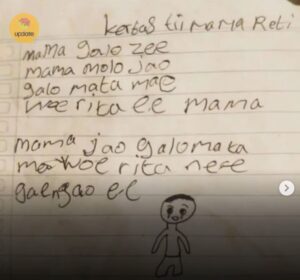 update
kertas tii mama Reti
mama galo zee
mama molo Jao
galo mata mae
woe rita ee mama
mama jao galo mata
mae woe rita nee
gae ngao ee